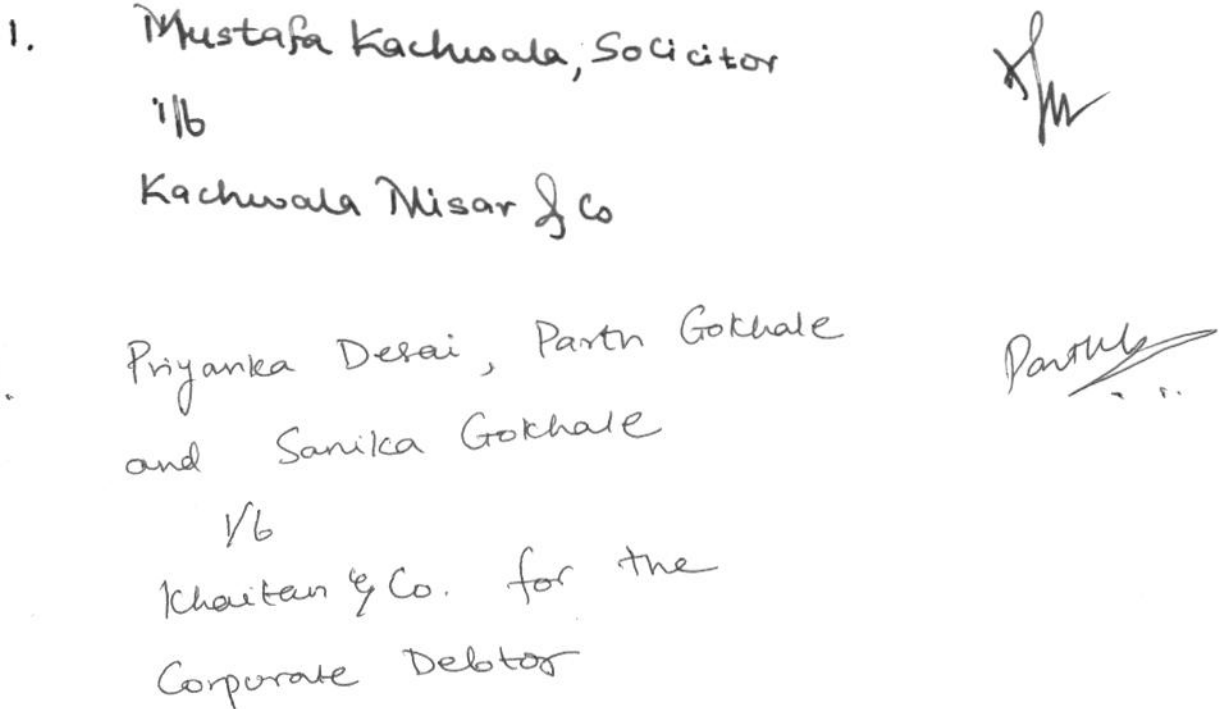 1. Mustafa Kachwala, Solicitor
i/b
Kachwala Misar & Co
Priyanka Desai, Parth Gokhale
and Sanika Gokhale
i/b
Khaitan & Co. for the
Corporate Debtor